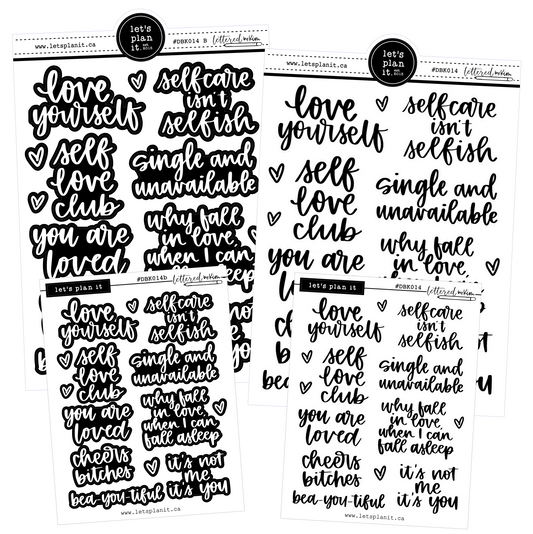 let's
plan
it.
EST.
2015
www.letsplanit.ca
#DBK014 B
lettered whim
love
yourself
selfcare
isn't
selfish
self
love
club
single and
unavailable
you are
loved
why fall
in love,
when I can
fall asleep
let's
plan
it.
EST.
2015
www.letsplanit.ca
#DBK014
lettered whim
love
yourself
selfcare
isn't
selfish
self
love
club
single and
unavailable
you are
why fall
in love,
let's plan it
#DBK014b
lettered whim
love
yourself
selfcare
isn't
selfish
self
love
club
single and
unavailable
you are
loved
why fall
in love,
when I can
fall asleep
cheers
bitches
it's not
me
it's you
bea-you-tiful
www.letsplanit.ca
let's plan it
#DBK014
lettered whim
love
yourself
selfcare
isn't
selfish
self
love
club
single and
unavailable
you are
loved
why fall
in love,
when I can
fall asleep
cheers
bitches
it's not
me
it's you
bea-you-tiful
www.letsplanit.ca